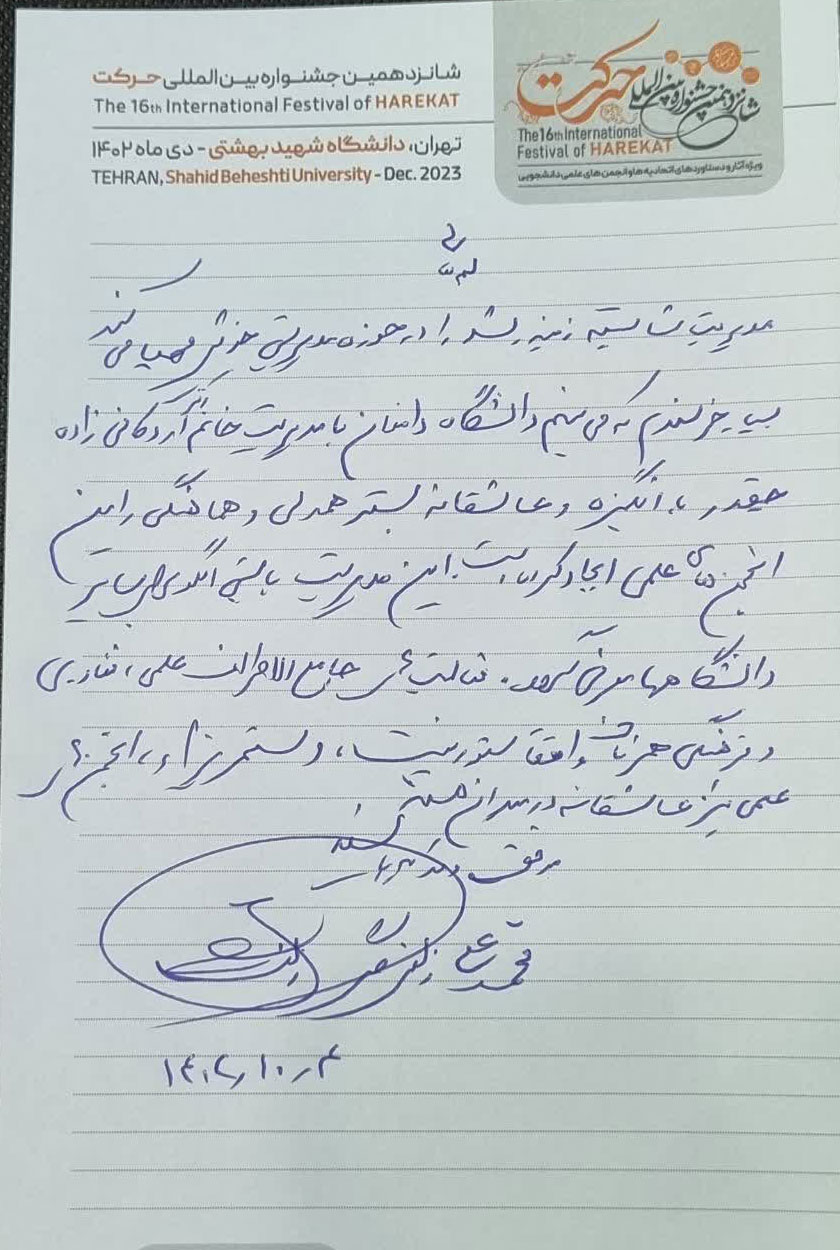 شانزدهمین جشنواره بین‌المللی حرکت
The 16th International Festival of HAREKAT
تهران، دانشگاه شهید بهشتی - دی ماه ۱۴۰۲
TEHRAN, Shahid Beheshti University - Dec. 2023
حرکت
شانزدهمین جشنواره بین‌المللی
The 16th International
Festival of HAREKAT
ویژه آثار و دستاوردهای اتحادیه‌ها و انجمن‌های علمی دانشجویی
مدیریت شایسته زمینه رشد را در حوزه مدیریتی خویش مهیا می کند
خرسندم که می بینم دانشگاه دامغان با مدیریت خانم دکتر اردکانی زاده
چقدر با انگیزه و عاشقانه بستر همدلی و هماهنگی را بین
انجمن های علمی ایجاد کرده است. این مدیریت بایستی الگوی سایر
دانشگاهها معرفی گردد. فعالیت های جامع الاطراف علمی، فناوری
و فرهنگی واقعا ستودنیست، انجمن های
علمی نیز عاشقانه در میدان هستند
موفق
محمد علی
۱۴۰۲/۱۰/۴